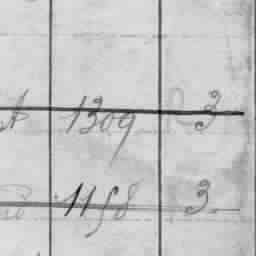 1309 3
1158 3.